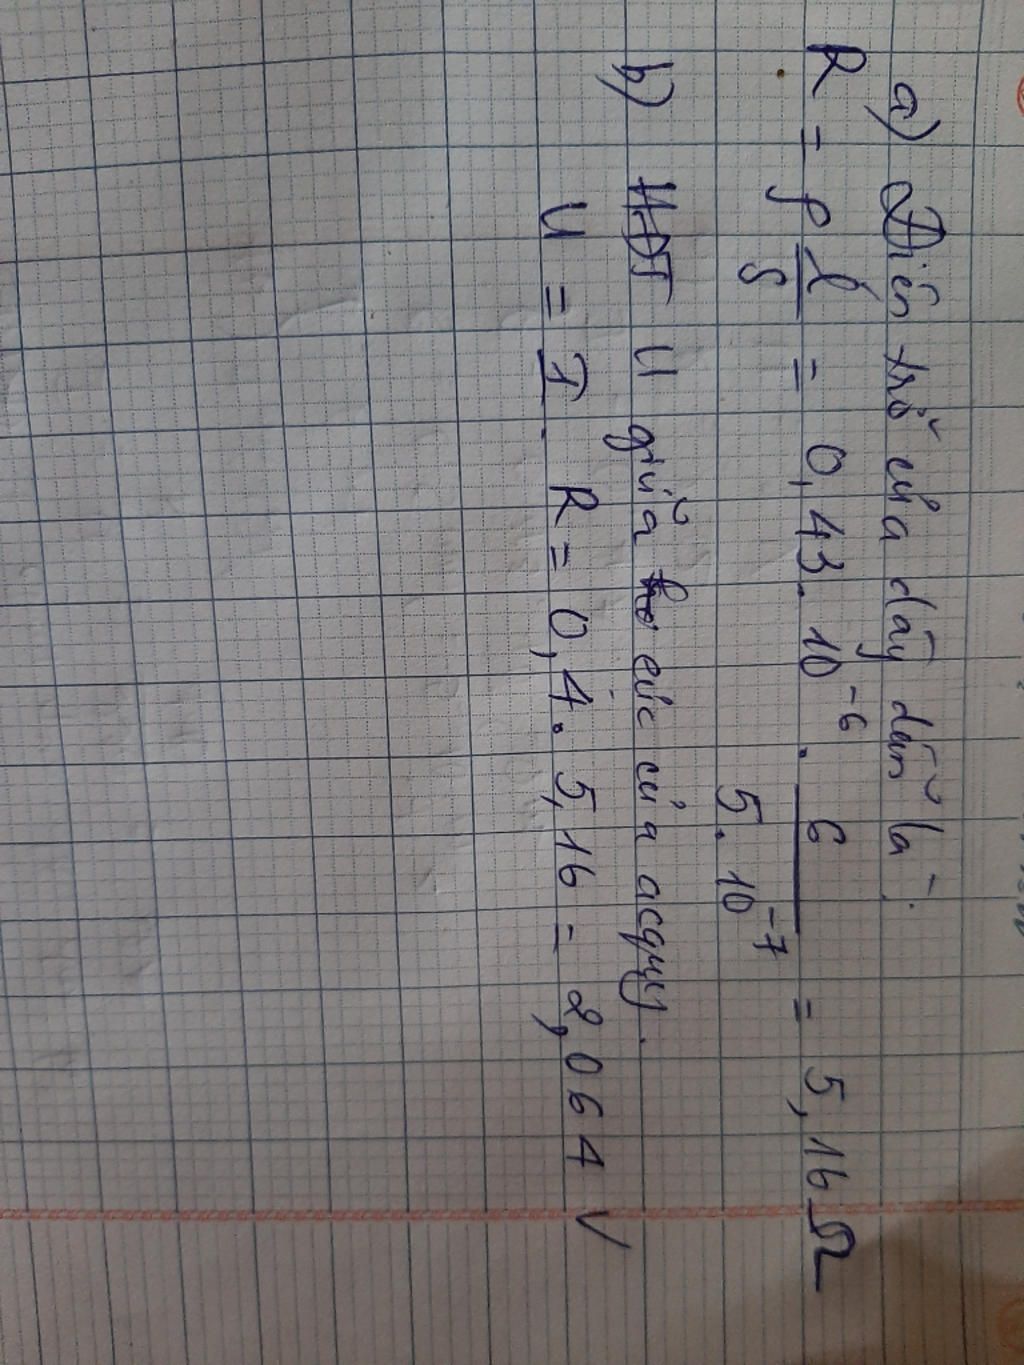 a) Điện trở của dây dẫn là:
R = ρ l/S = 0,43. 10⁻⁶ . 6/5. 10⁻⁷ = 5,16 Ω
b) HĐT U giữa cực của acquy.
U = I. R = 0,4. 5,16 = 2,064 V